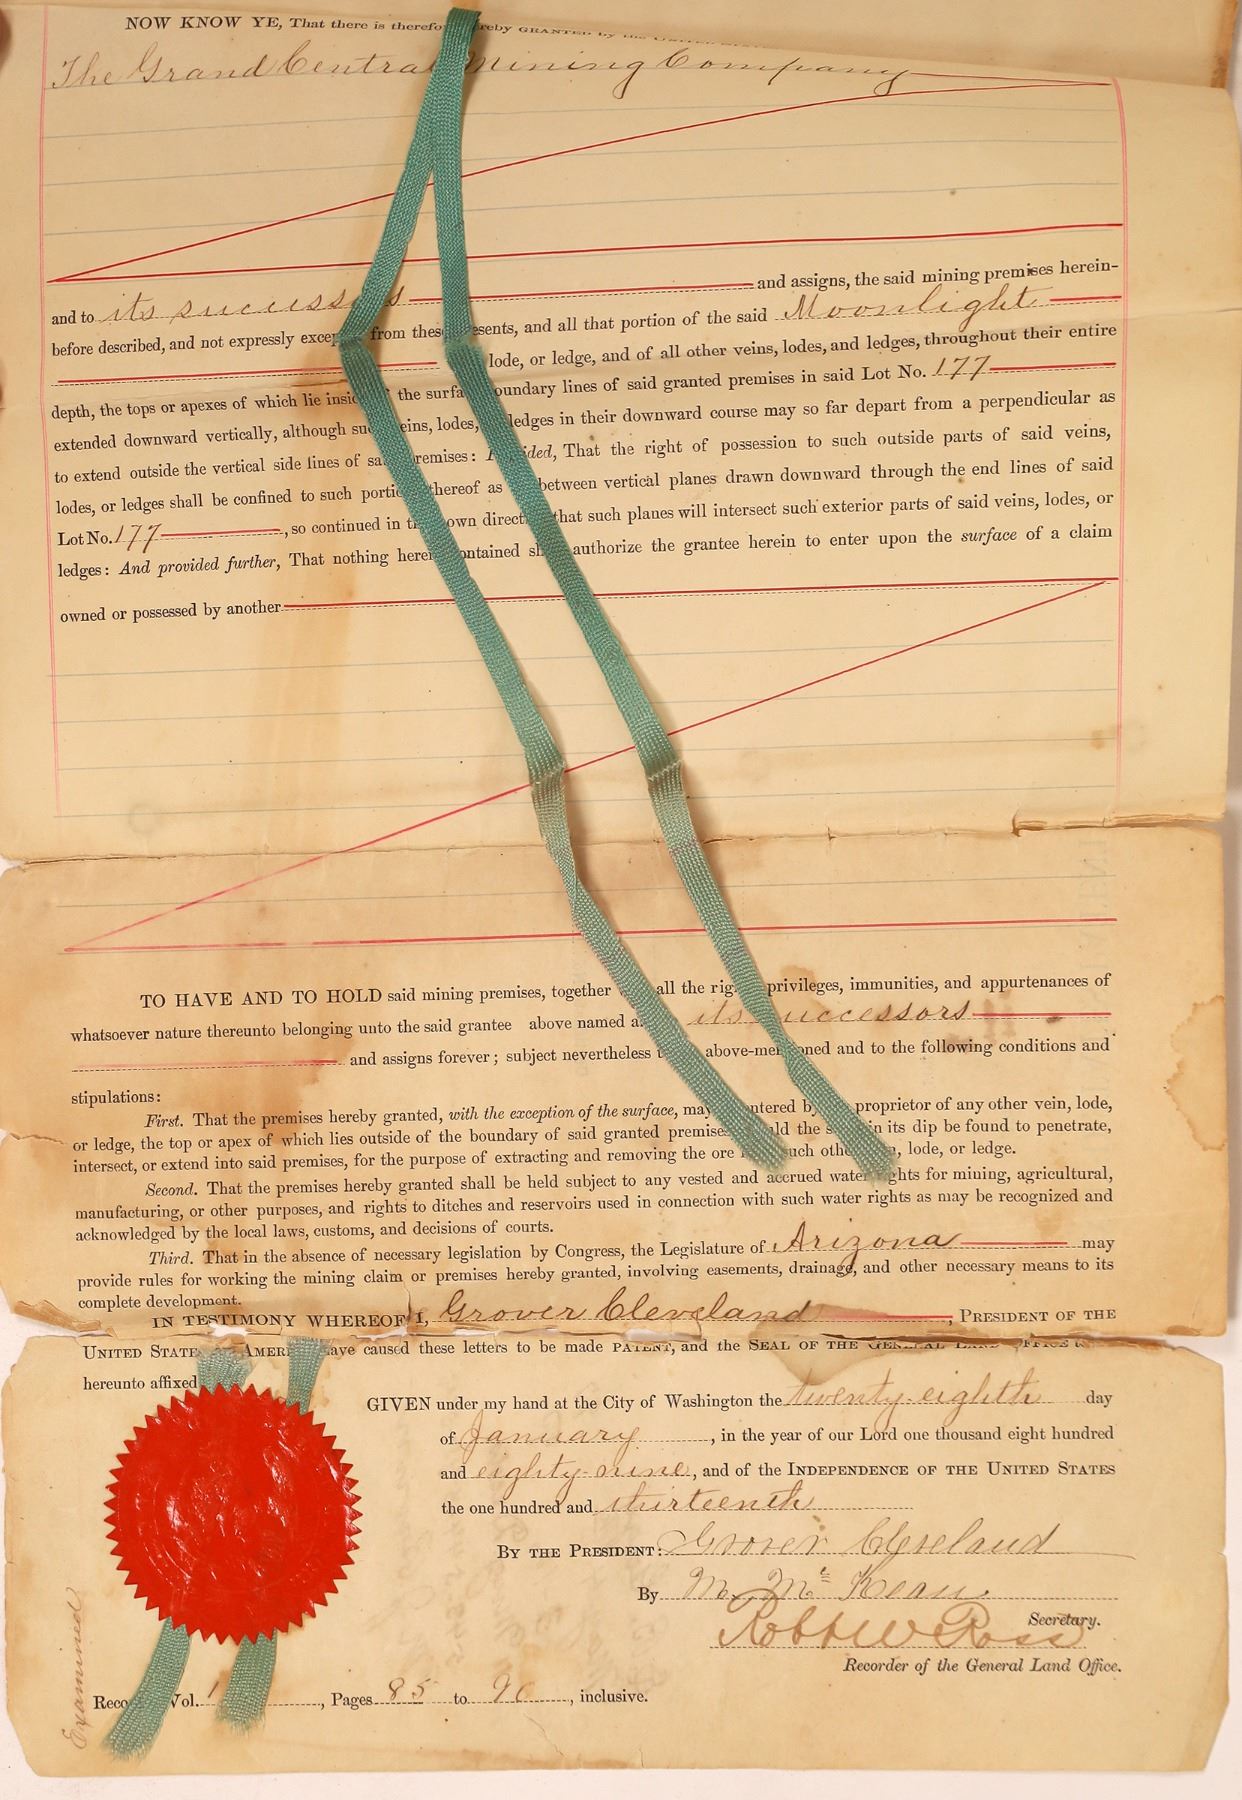 NOW KNOW YE, That there is therefo reby GRANTED by the UNITED
The Grand Central Mining Company
and to its successors and assigns, the said mining premises herein-
before described, and not expressly excep from these esents, and all that portion of the said Moonlight
lode, or ledge, and of all other veins, lodes, and ledges, throughout their entire
depth, the tops or apexes of which lie insi the surfa oundary lines of said granted premises in said Lot No. 177
extended downward vertically, although su eins, lodes, ledges in their downward course may so far depart from a perpendicular as
to extend outside the vertical side lines of sa remises: P ided, That the right of possession to such outside parts of said veins,
lodes, or ledges shall be confined to such porti thereof as between vertical planes drawn downward through the end lines of said
Lot No. 177, so continued in t own direct that such planes will intersect such exterior parts of said veins, lodes, or
ledges: And provided further, That nothing herei ontained s authorize the grantee herein to enter upon the surface of a claim
owned or possessed by another
TO HAVE AND TO HOLD said mining premises, together all the rig privileges, immunities, and appurtenances of
whatsoever nature thereunto belonging unto the said grantee above named a its successors
and assigns forever; subject nevertheless t above-mentioned and to the following conditions and
stipulations:
First. That the premises hereby granted, with the exception of the surface, may entered by proprietor of any other vein, lode,
or ledge, the top or apex of which lies outside of the boundary of said granted premises ld the s in its dip be found to penetrate,
intersect, or extend into said premises, for the purpose of extracting and removing the ore such othe , lode, or ledge.
Second. That the premises hereby granted shall be held subject to any vested and accrued water ghts for mining, agricultural,
manufacturing, or other purposes, and rights to ditches and reservoirs used in connection with such water rights as may be recognized and
acknowledged by the local laws, customs, and decisions of courts.
Third. That in the absence of necessary legislation by Congress, the Legislature of Arizona may
provide rules for working the mining claim or premises hereby granted, involving easements, drainage, and other necessary means to its
complete development.
IN TESTIMONY WHEREOF I, Grover Cleveland, PRESIDENT OF THE
UNITED STATES AMERI ave caused these letters to be made PATENT, and the SEAL OF THE GENERAL LAND OFFICE
hereunto affixed
GIVEN under my hand at the City of Washington the twenty-eighth day
of January, in the year of our Lord one thousand eight hundred
and eighty-nine, and of the INDEPENDENCE OF THE UNITED STATES
the one hundred and thirteenth
BY THE PRESIDENT: Grover Cleveland
By M. McKean
Secretary.
Robt W Ross
Recorder of the General Land Office.
Reco Vol. 1 , Pages 85 to 90, inclusive.
Examined